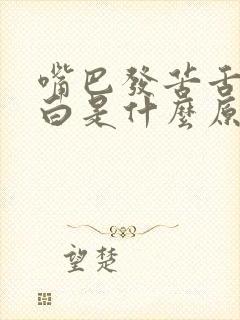 嘴巴發苦舌
白是什麼原
望楚